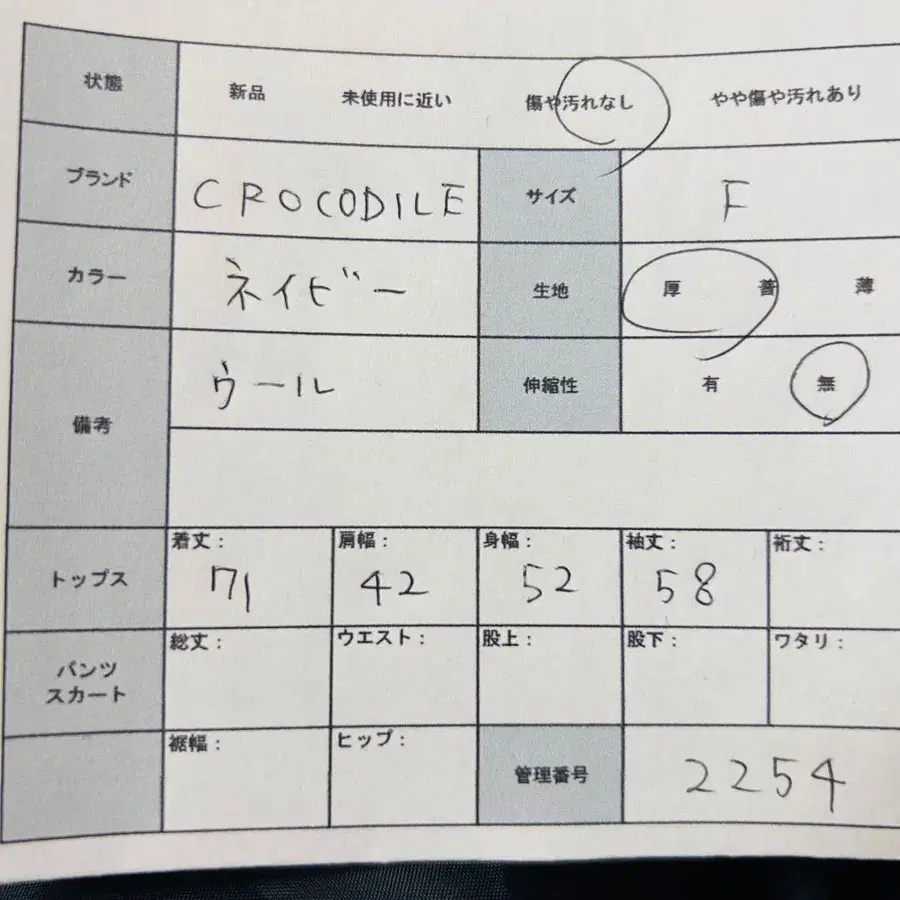 状態 新品 未使用に近い 傷や汚れなし やや傷や汚れあり
ブランド CROCODILE サイズ F
カラー ネイビー 生地 厚 普 薄
備考 ウール 伸縮性 有 無
トップス 着丈: 71 肩幅: 42 身幅: 52 袖丈: 58 裄丈:
パンツ スカート 総丈: ウエスト: 股上: 股下: ワタリ:
裾幅: ヒップ: 管理番号 2254